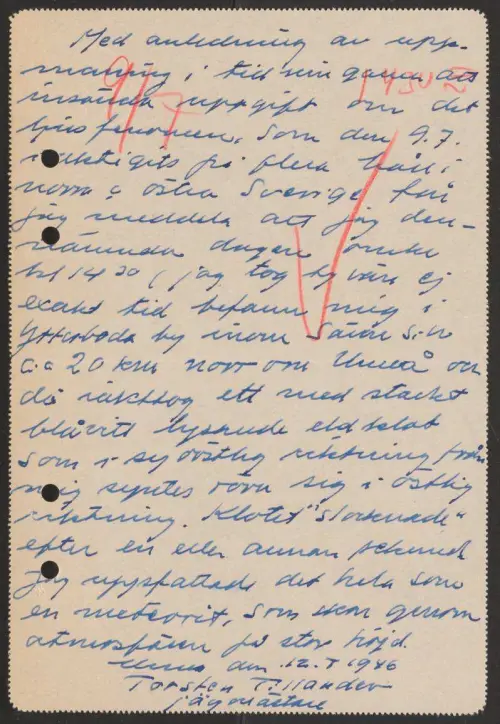 Med anledning av upp-
maning i tidningarna att
insända uppgift om det
ljusfenomen, som den 9.7.
iakttigits på flera håll i
norra o östra Sverige får
jag meddela att jag den-
nämnda dagen
kl 1430 ( jag tog tyvärr ej
exakt tid befann mig i
Ytterboda by inom Sävar s:n
c:a 20 km norr om Umeå och
då iakttog ett med starkt
blåvitt lysande eldklot
som i sydöstlig riktning från
mig syntes röra sig i östlig
riktning. Klotet "slocknade"
efter en eller annan sekund
Jag uppfattade det hela som
en meteorit, som skar genom
atmosfären på stor höjd.
Umeå den 12.7 1946
Torsten Tillander
jägmästare
9/7
1430